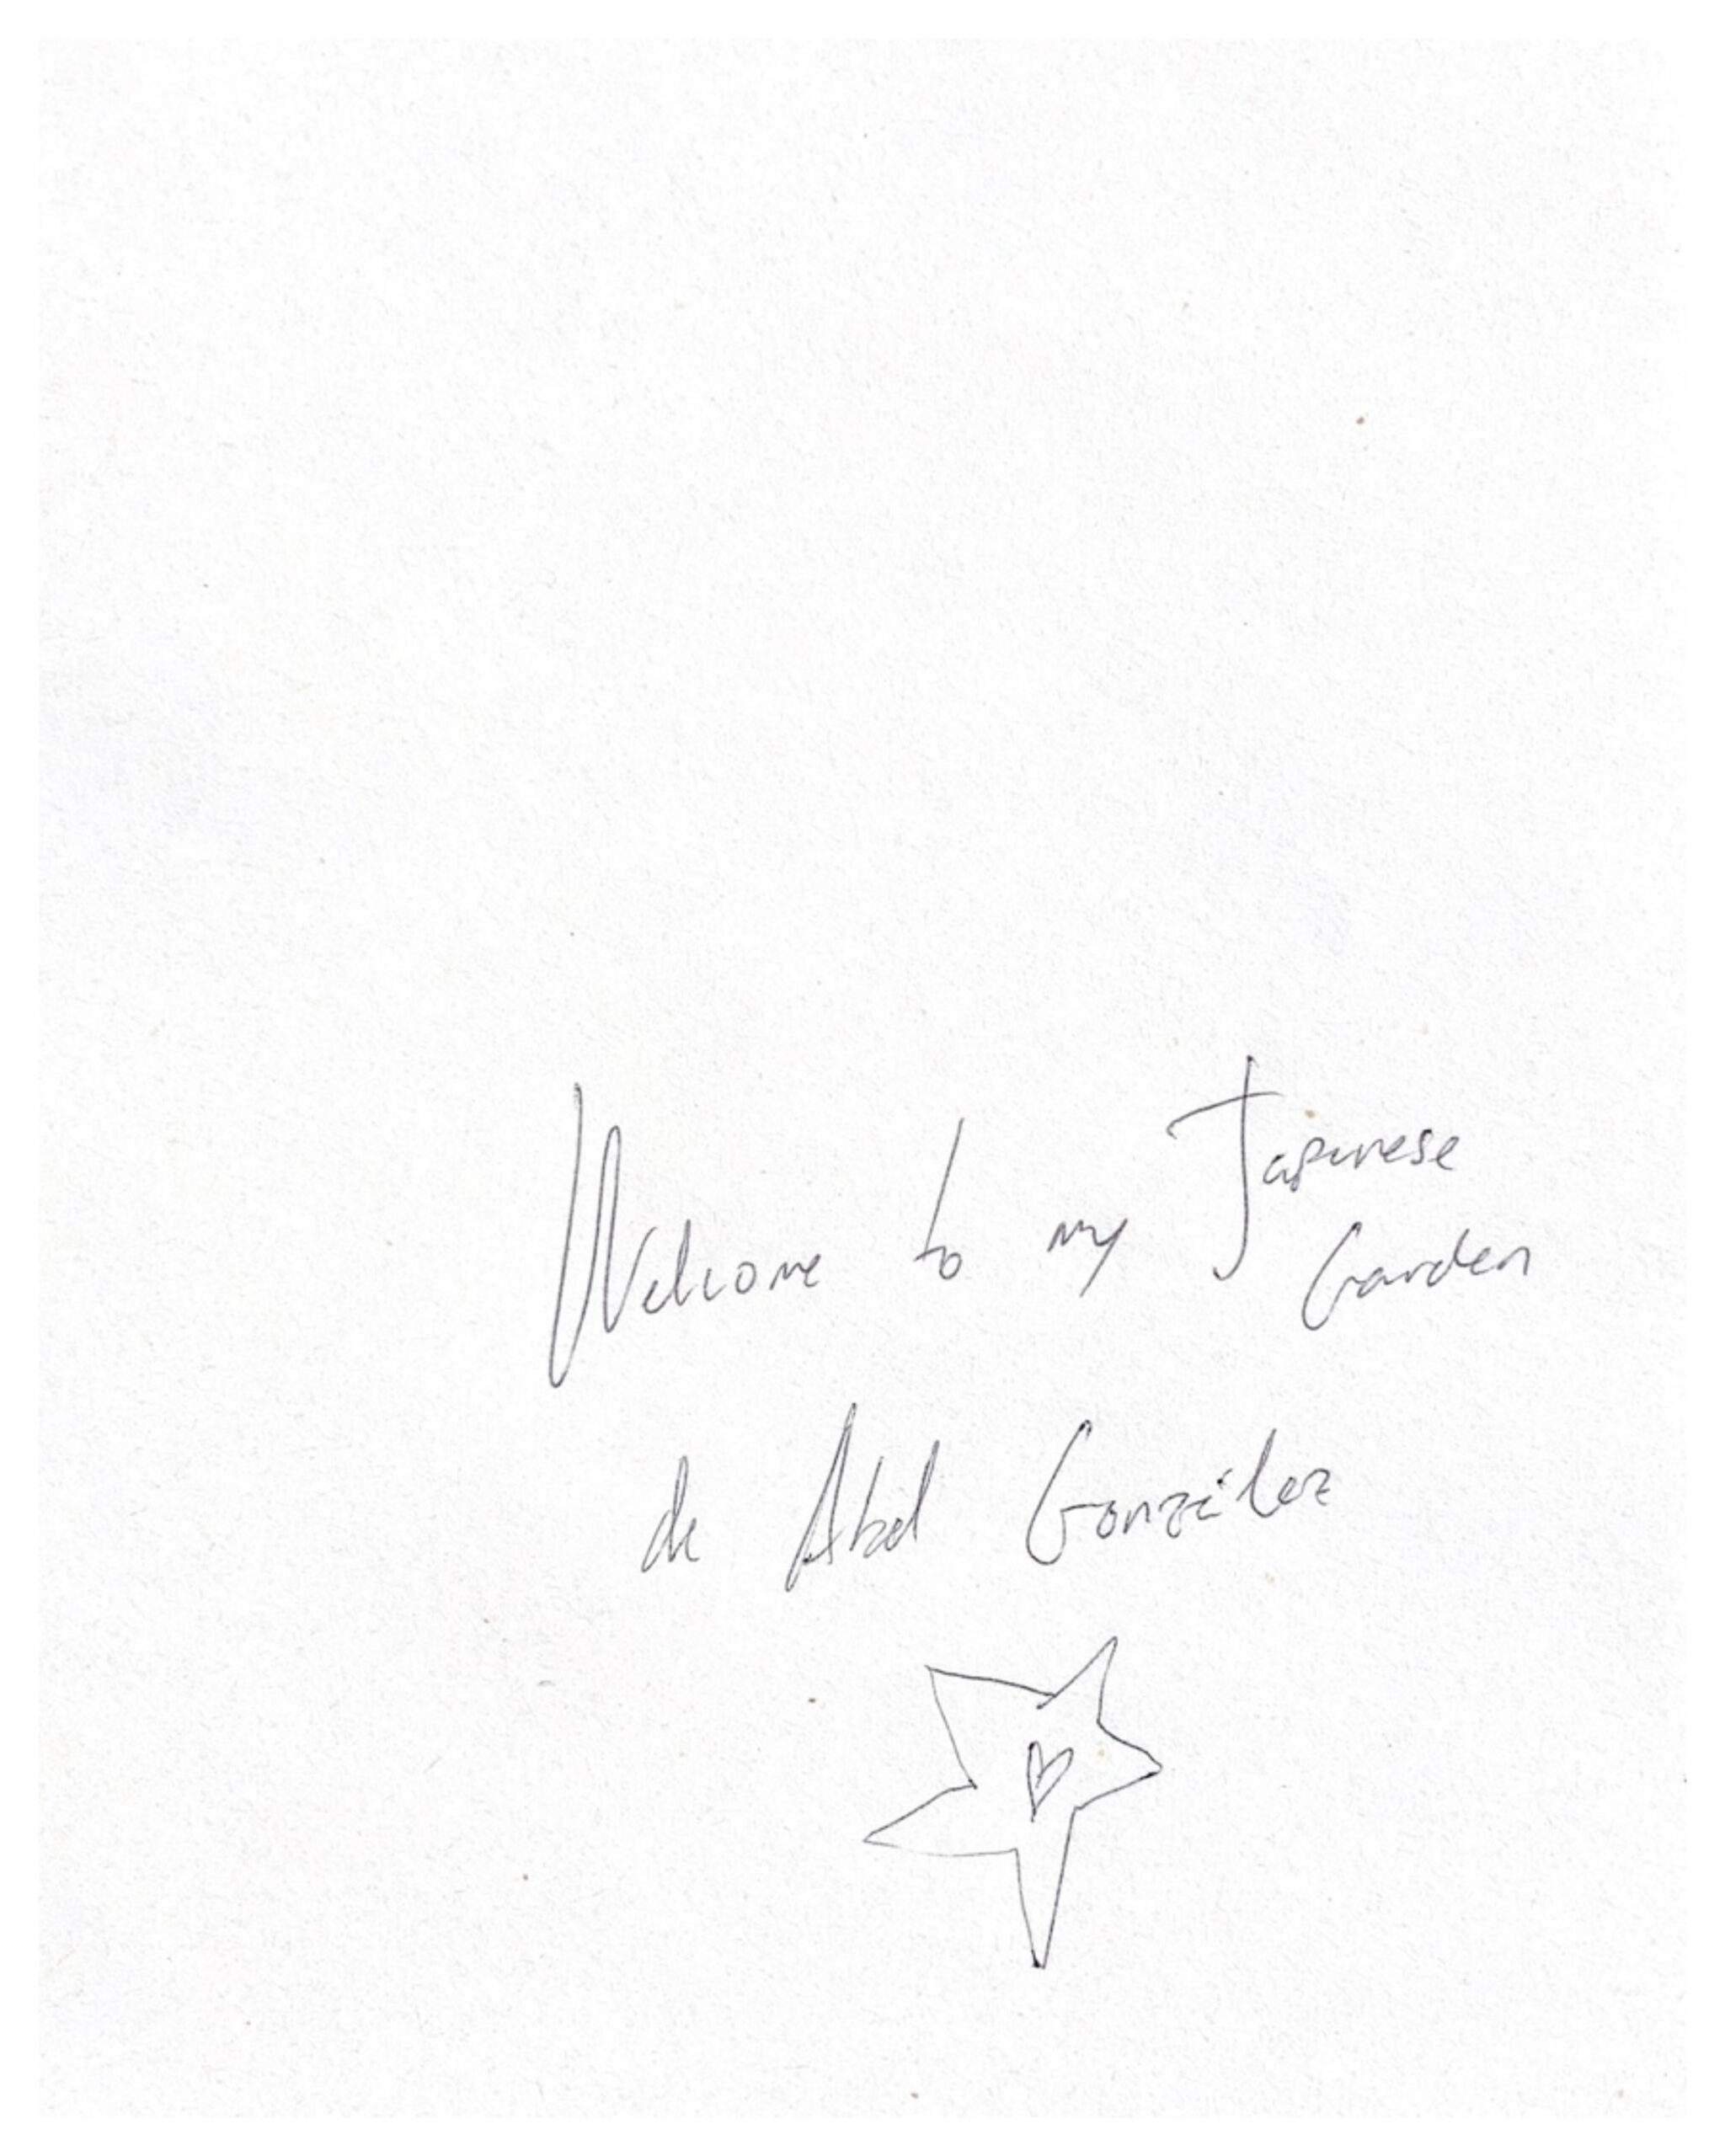 Welcome to my Japanese
Garden
de Abel González